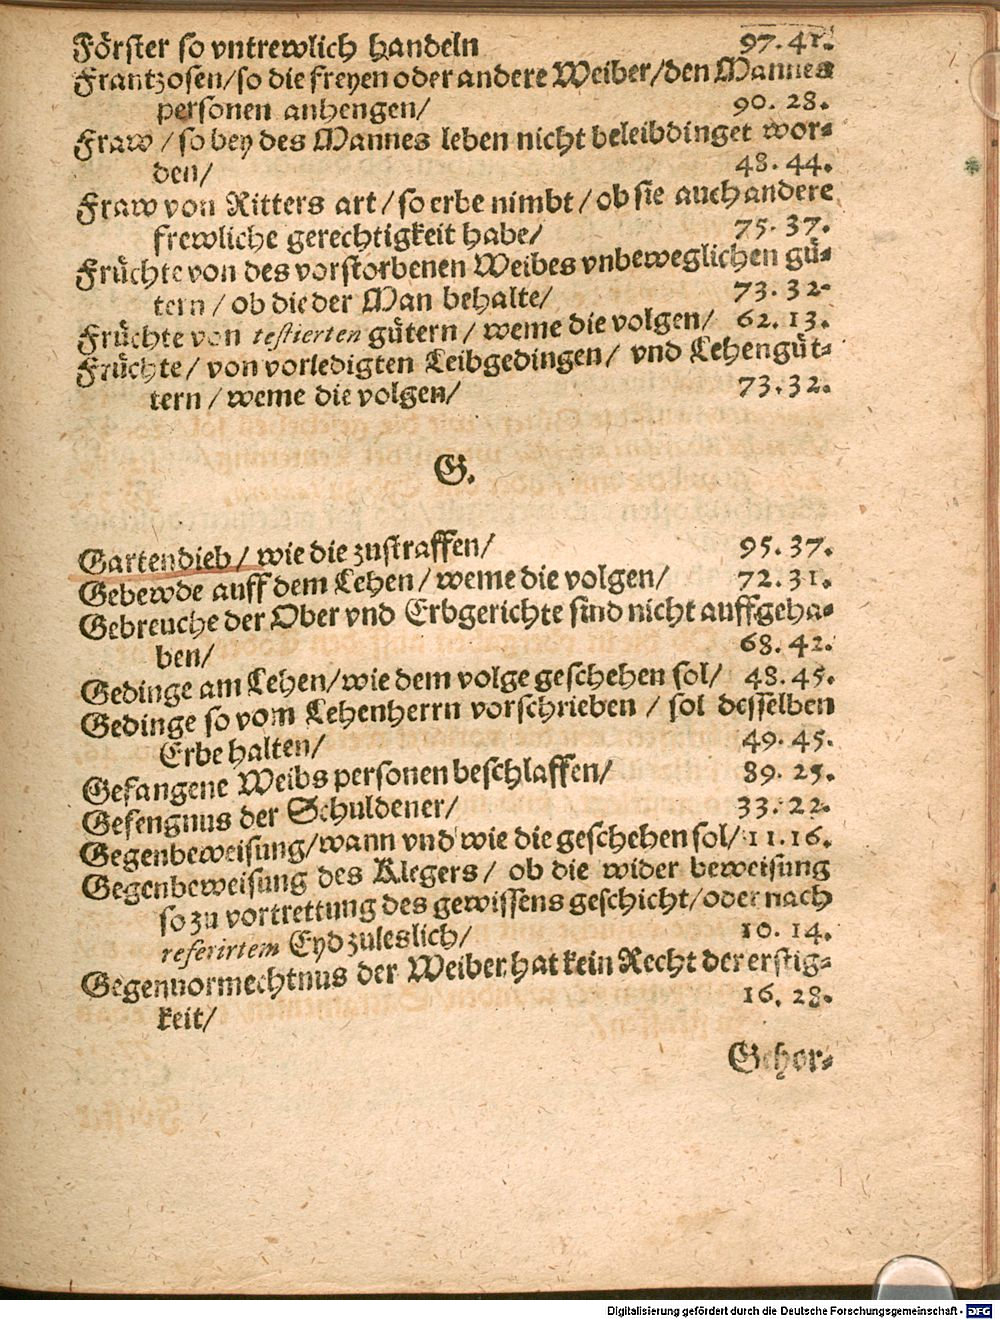 Förster so vntrewlich handeln 97. 41.
Frantzosen/so die freyen oder andere Weiber/den Mannes
personen anhengen/ 90. 28.
Fraw /so bey des Mannes leben nicht beleibdinget wor-
den/ 48. 44.
Fraw von Ritters art /so erbe nimbt /ob sie auch andere
frewliche gerechtigkeit habe/ 75. 37.
Früchte von des vorstorbenen Weibes vnbeweglichen gü-
tern /ob die der Man behalte/ 73. 32.
Früchte von testierten gütern / weme die volgen/ 62. 13.
Früchte/ von vorledigten Leibgedingen/ vnd Lehengüt-
tern /weme die volgen/ 73. 32.
G.
Gartendieb/ wie die zustraffen/ 95. 37.
Gebewde auff dem Lehen/weme die volgen/ 72. 31.
Gebreuche der Ober vnd Erbgerichte sind nicht auffgeha-
ben/ 68. 42.
Gedinge am Lehen/wie dem volge geschehen sol/ 48. 45.
Gedinge so vom Lehenherrn vorschrieben / sol desselben
Erbe halten/ 49. 45.
Gefangene Weibs personen beschlaffen/ 89. 25.
Gefengnus der Schuldener/ 33. 22.
Gegenbeweisung/wann vnd wie die geschehen sol/ 11. 16.
Gegenbeweisung des Klegers/ ob die wider beweisung
so zu vortrettung des gewissens geschicht/oder nach
referirtem Eyd zuleslich/ 10. 14.
Gegenuormechtnus der Weiber, hat kein Recht der erstig-
keit/ 16. 28.
Gehor-
Digitalisierung gefördert durch die Deutsche Forschungsgemeinschaft - DFG